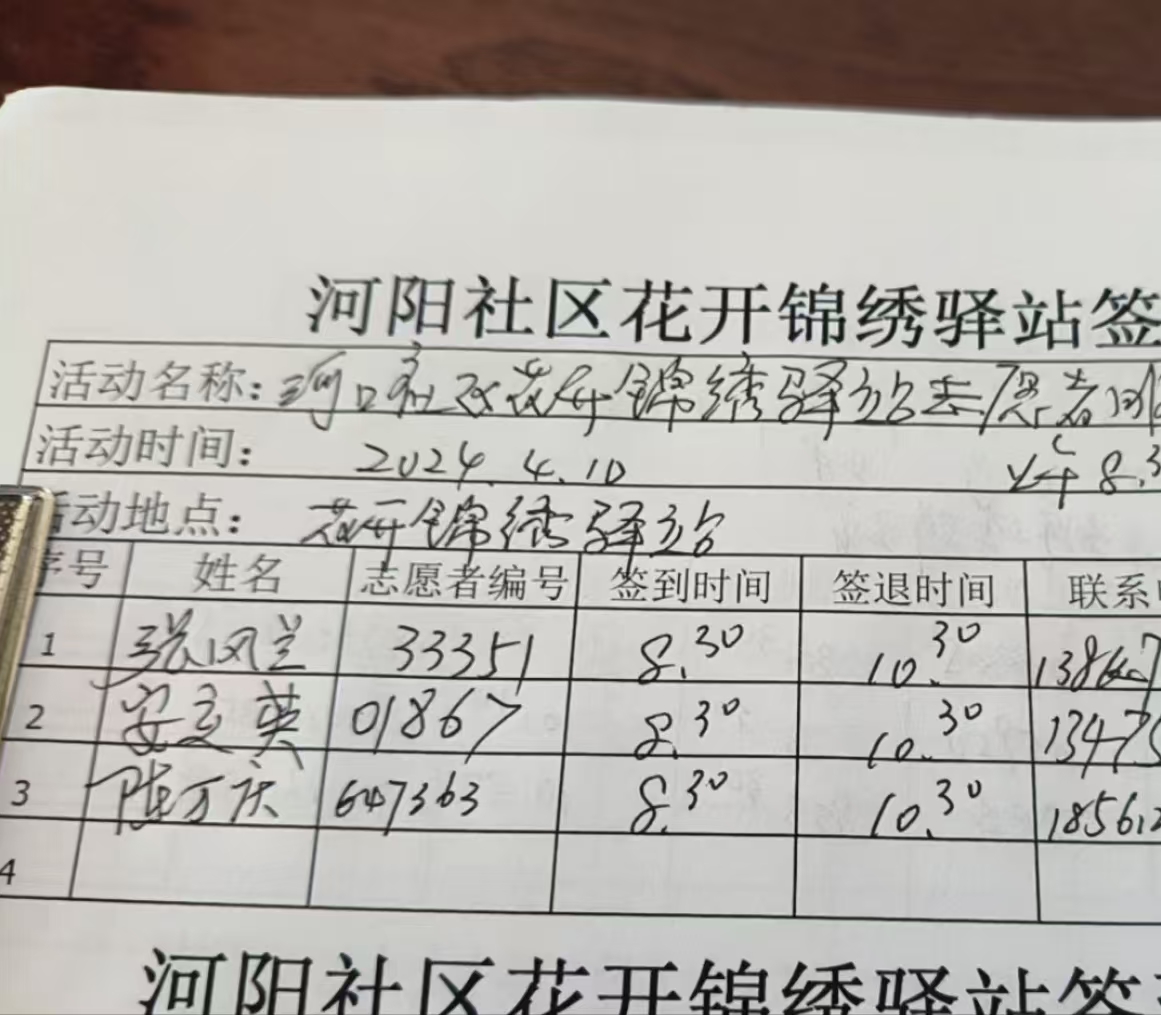 河阳社区花开锦绣驿站签
活动名称:河口社区花开锦绣驿站志愿者服
活动时间: 2024.4.10 上午 8.3
活动地点: 花开锦绣驿站
序号 姓名 志愿者编号 签到时间 签退时间 联系
1 张凤兰 33351 8.30 10.30
2 安立英 01867 8.30 10.30 13475
3 陈万庆 647363 8.30 10.30 18561
4
河阳社区花开锦绣驿站签